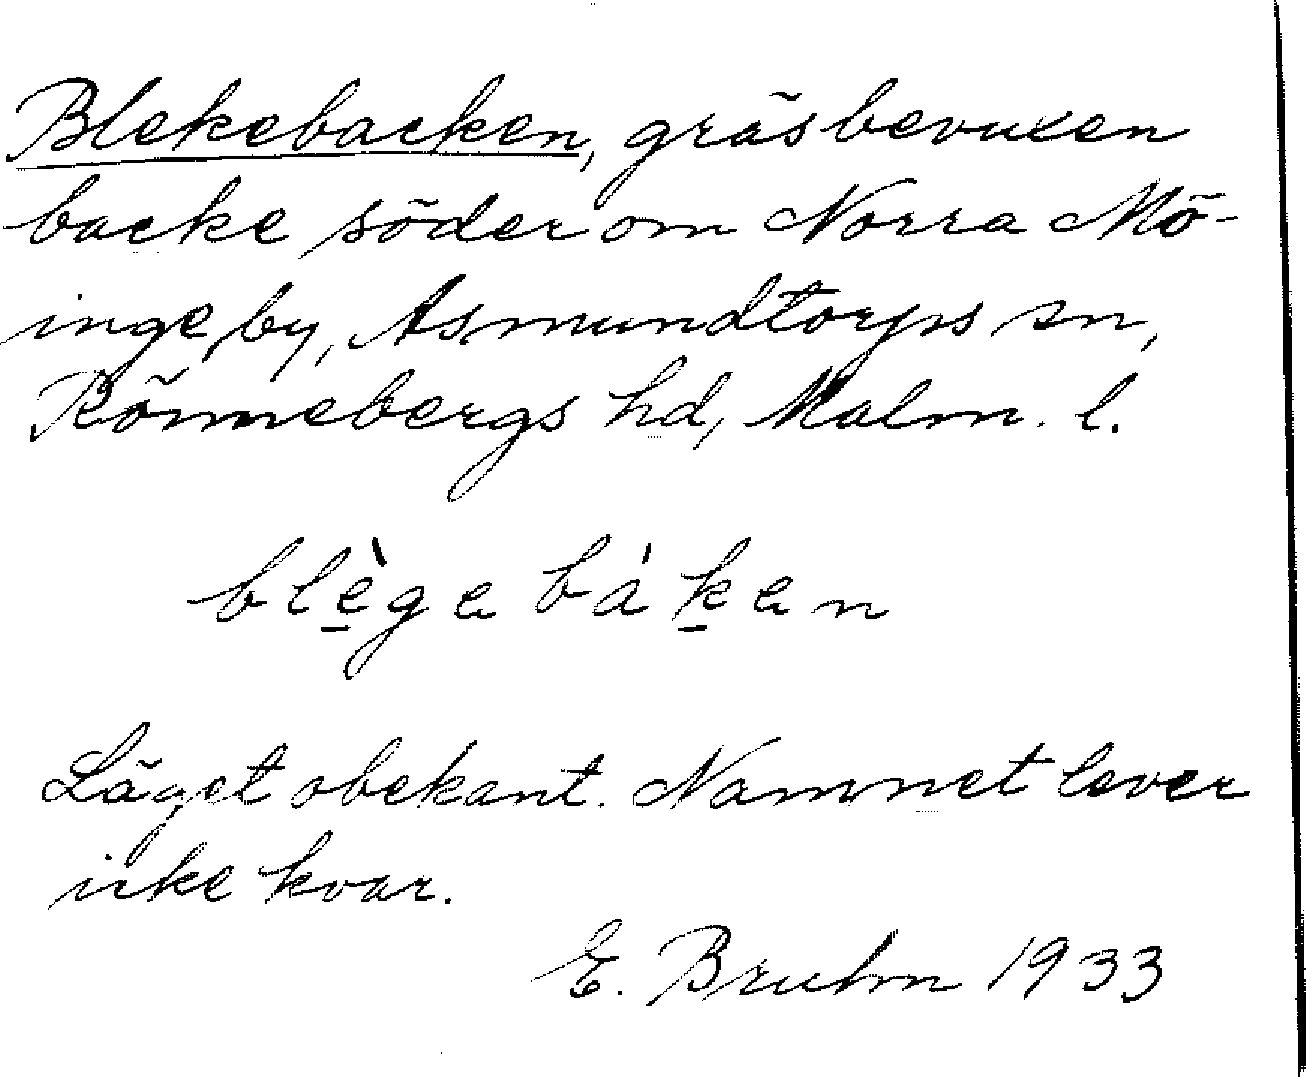 Blekebacken, gräsbevuxen
backe söder om Norra Mö-
inge by, Asmundtorps sn,
Rönnebergs hd, Malm. l.
blègebáken
Läget obekant. Namnet lever
icke kvar.
E. Bruhn 1933